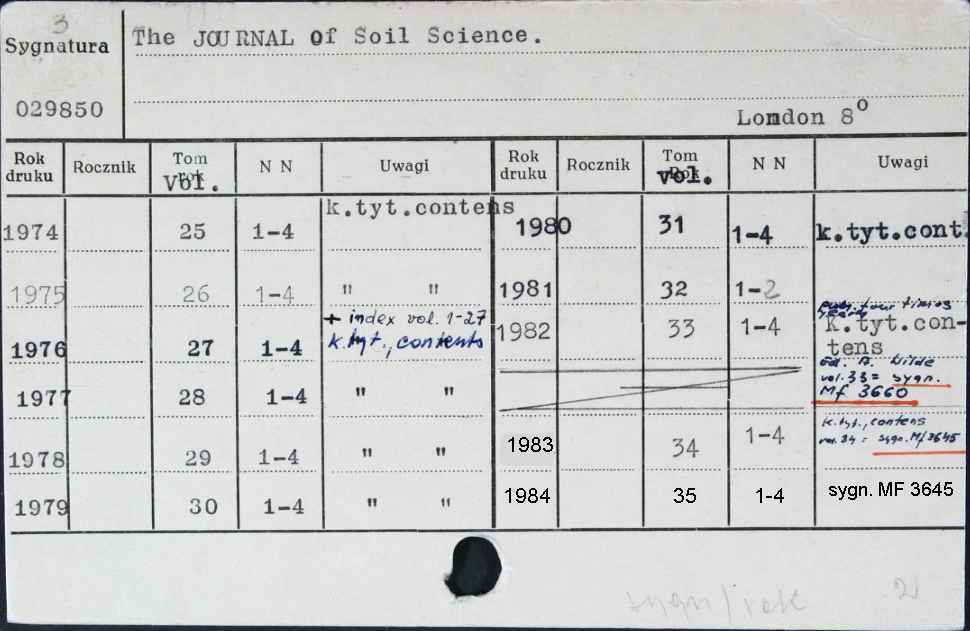 3
Sygnatura
029850
The JOURNAL of Soil Science.
London 8°
Rok druku Rocznik Tom Vol. N N Uwagi
1974 25 1-4 k.tyt.contens
1975 26 1-4 " "
+ index vol. 1-27
1976 27 1-4 k.tyt., contents
1977 28 1-4 " "
1978 29 1-4 " "
1979 30 1-4 " "
Rok druku Rocznik Tom Rok vol. N N Uwagi
1980 31 1-4 k.tyt.cont.
1981 32 1-2
four times
1982 33 1-4 k.tyt.con-
tens
Ed. A. Wilde
vol. 33 = sygn.
Mf 3660
1983 34 1-4 k.tyt., contens
vol. 34 = sygn. Mf 3645
1984 35 1-4 sygn. MF 3645
sygn/rok